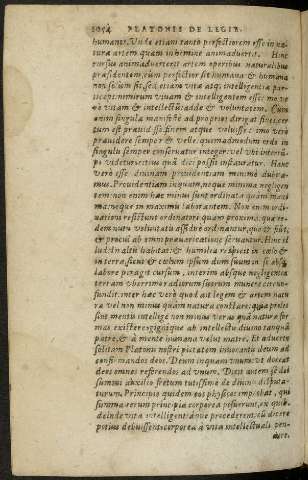 1054 PLATONIS DE LEGIB.
humano. Vnde etiam tanto perfectiorem esse in na
tura artem quàm in homine animaduertit. Hinc
rursus animaduertit artem operibus naturalibus
præsidentem, cùm perfectior sit humana & humana
non solùm sit, sed etiam vita atq; intelligentia par-
ticeps: nimirum viuam & intelligentem esse: modo
eò vitam & intellectũ adde & voluntatem. Cùm
enim singula manifestè ad proprios dirigat fines, cer
tum est præuidisse finem atque voluisse: imo verò
prævidere semper & velle, quemadmodum ordo in
singulis semper conseruatur integer, vel vbi interrũ
pi videtur, ocius quã dici possit instauratur. Hanc
verò esse diuinam prouidentiam minimè dubita-
mus. Prouidentiam inquam, neque minima negligen
tem: non enim hæc minus sunt ordinata quàm maxi
ma: neque in maximis laborantem. Non enim ordi-
natione
& procul ab omni permutatione seruantur. Hinc il
lud: In altũ habitat & humilia respicit in cælo &
in terra, sicut & cœlum ipsum dum summa sit absq;
labore peragit cursum, interim absque negligentia
terram vberrimo adiutorũ suorum munere circun-
fundit. inter hæc verò quod ait legem & artem natu
ra vel non minùs quàm natura constare: quia profe-
ctò mentis intellige non minus veras quã naturæ for
mas existere: gignique ab intellectu diuino tanquã
patre, & à mente humana velut matre. Et aduerte
solitam Platoni nostri pietatem inhortantis ad eum ad
confirmandos deos. Deum inquam vnum: vt doceat
deos omnes referendos ad vnum. Dicit autem se dei
summi auxilio fretum tutissimè de diuinis disputa-
turum. Principio quidem eos physicos improbat, qui
summa rerum principia corporea posuerunt, ex quib.
deinde vita intelligentiaque procederent, cũ dicere
potius debuissent: corporea à vita intellectuali pen-
dere.